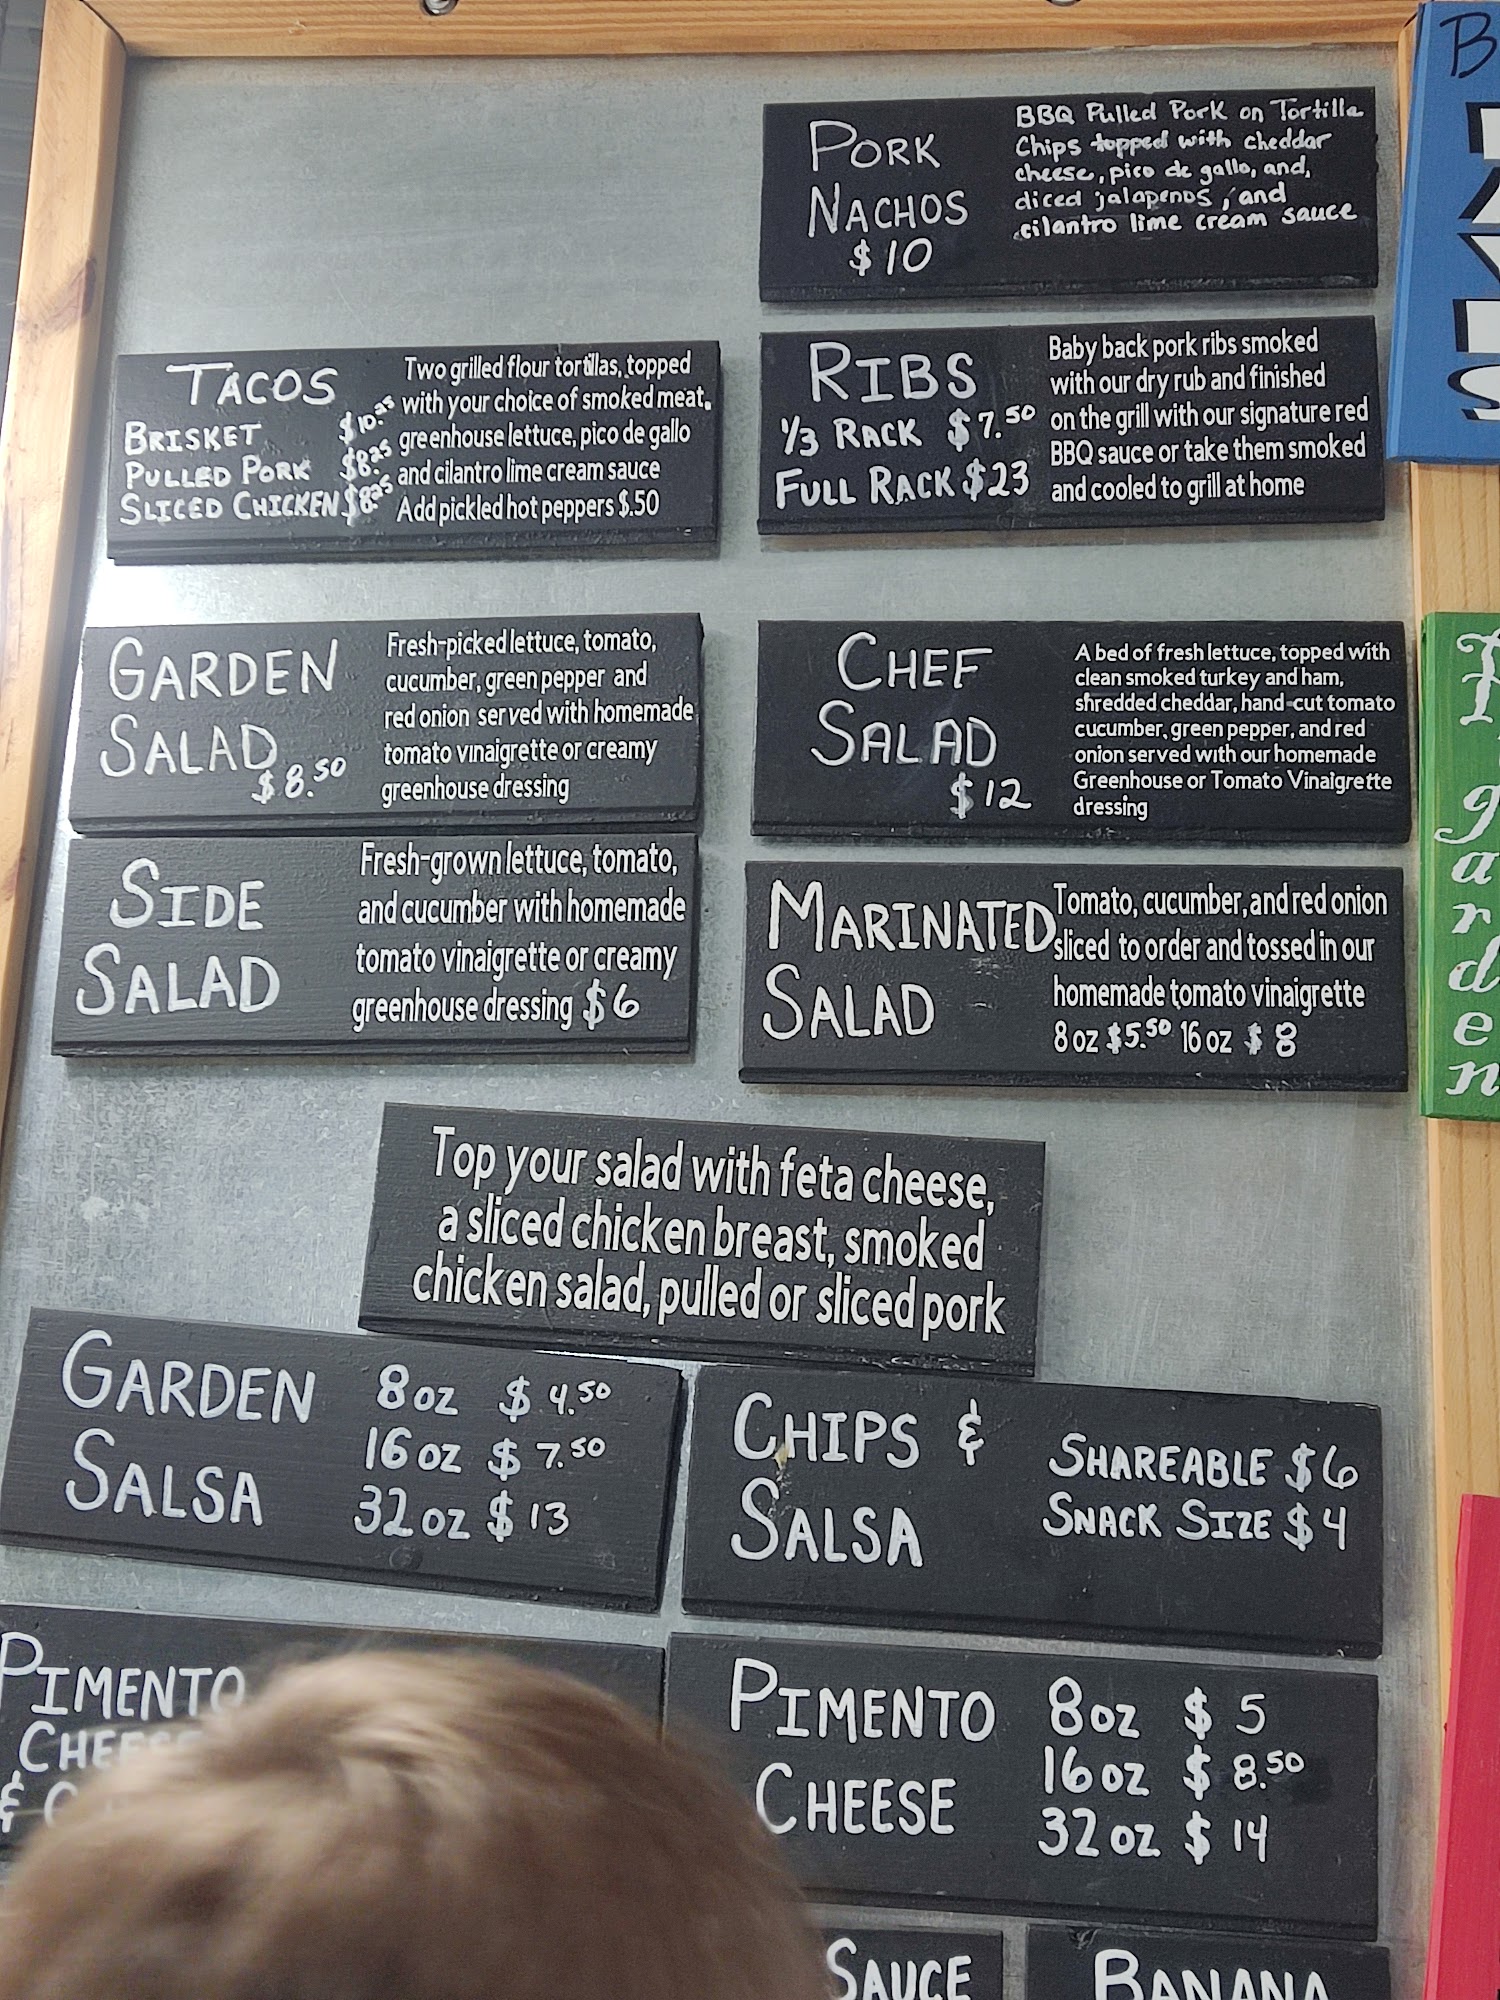 PORK
NACHOS
$10
BBQ Pulled Pork on Tortilla
Chips topped with cheddar
cheese, pico de gallo, and,
diced jalapenos, and
cilantro lime cream sauce
TACOS
BRISKET $10.25
PULLED PORK $8.25
SLICED CHICKEN $8.25
Two grilled flour tortillas, topped
with your choice of smoked meat,
greenhouse lettuce, pico de gallo
and cilantro lime cream sauce
Add pickled hot peppers $.50
RIBS
1/3 RACK $7.50
FULL RACK $23
Baby back pork ribs smoked
with our dry rub and finished
on the grill with our signature red
BBQ sauce or take them smoked
and cooled to grill at home
GARDEN
SALAD
$8.50
Fresh-picked lettuce, tomato,
cucumber, green pepper and
red onion served with homemade
tomato vinaigrette or creamy
greenhouse dressing
CHEF
SALAD
$12
A bed of fresh lettuce, topped with
clean smoked turkey and ham,
shredded cheddar, hand-cut tomato
cucumber, green pepper, and red
onion served with our homemade
Greenhouse or Tomato Vinaigrette
dressing
SIDE
SALAD
Fresh-grown lettuce, tomato,
and cucumber with homemade
tomato vinaigrette or creamy
greenhouse dressing $6
MARINATED
SALAD
Tomato, cucumber, and red onion
sliced to order and tossed in our
homemade tomato vinaigrette
8 oz $5.50 16 oz $8
Top your salad with feta cheese,
a sliced chicken breast, smoked
chicken salad, pulled or sliced pork
GARDEN
SALSA
8 oz $4.50
16 oz $7.50
32 oz $13
CHIPS &
SALSA
SHAREABLE $6
SNACK SIZE $4
PIMENTO
CHEESE
&
PIMENTO
CHEESE
8 oz $5
16 oz $8.50
32 oz $14
SAUCE
BANANA
garden